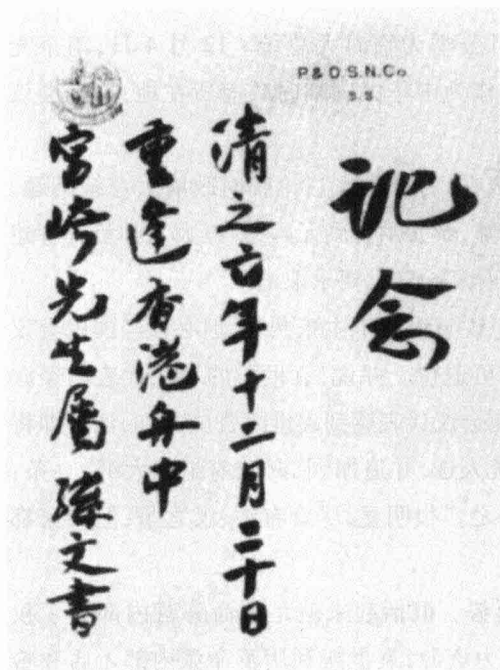 P & O.S.N.Co
S.S.
記念
清之亡年十二月二十日
重逢香港舟中
宮崎先生屬 孫文書